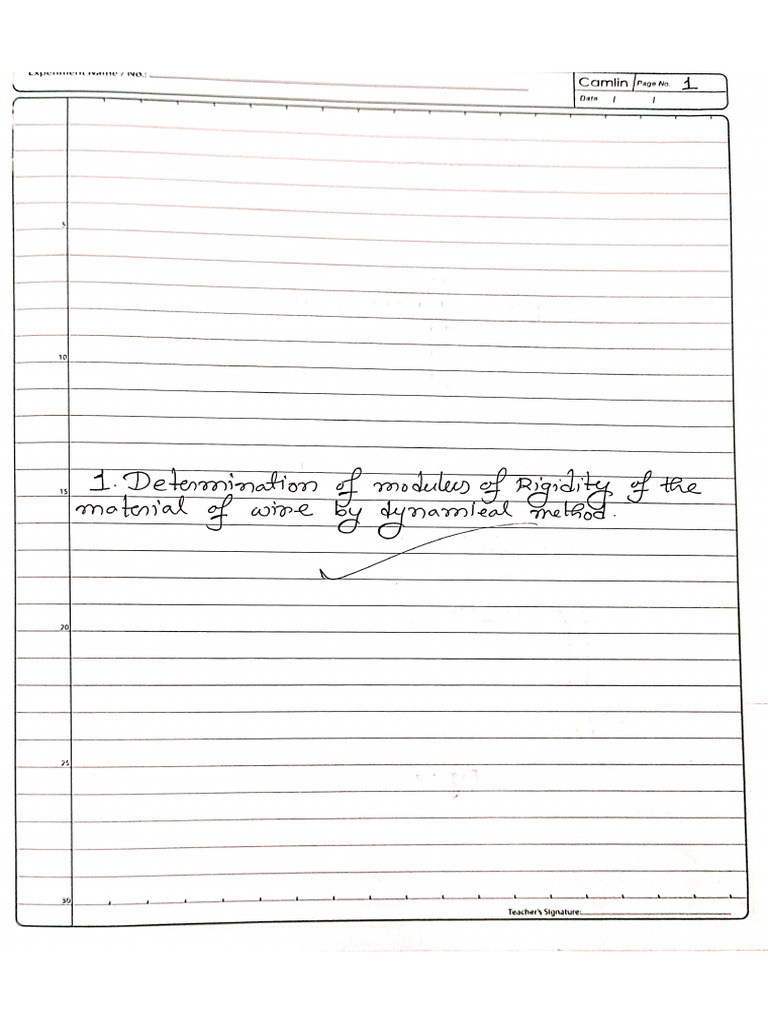 Experiment Name / No.:
Camlin Page No. 1
Date / /
5
10
1. Determination of modulus of Rigidity of the
15
material of wire by dynamical method.
20
25
30
Teacher's Signature: